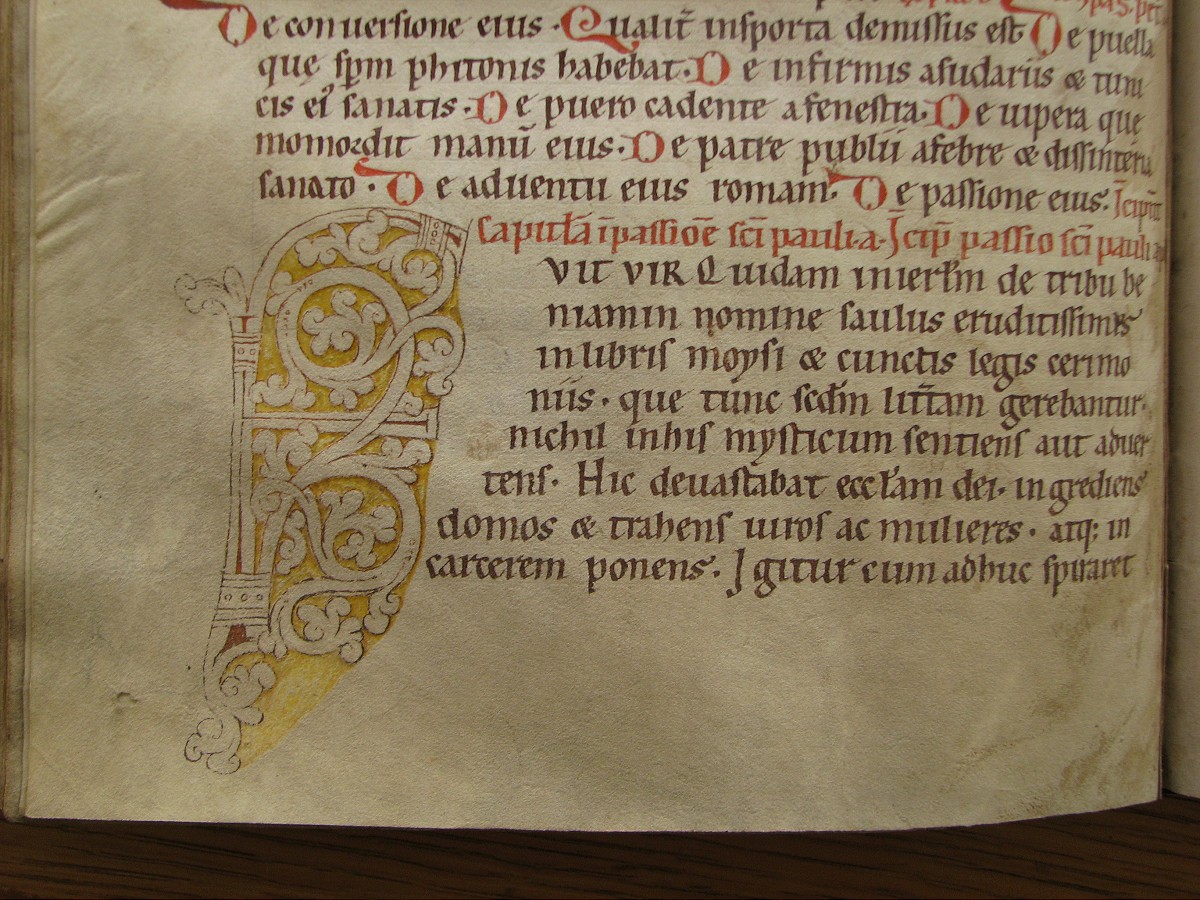 De conuersione eius. Qualit̄ insporta demissus est. De puella
quę sp̄m phitonis habebat. De infirmis asudariis & tuni
cis ei' sanatis. De puero cadente afenestra. De uipera quę
momordit manū eius. De patre publii afebre & dissinteria
sanato. De aduentu eius romam. De passione eius. Incipiūt
capitl̄a ī passiōe sc̄i pauli.a. Incip̄ passio sc̄i pauli ap
FVIT VIR Quidam inierl̄m de tribu be
niamin nomine saulus eruditissimus
inlibris moysi & cunctis legis cerimo
niis. que tunc scd̄m litt̄am gerebantur.
nichil inhis mysticum sentiens aut aduer
tens. Hic deuastabat eccl̄am dei. ingrediens
domos & trahens uiros ac mulieres. atq; in
carcerem ponens. Igitur cum adhuc spiraret